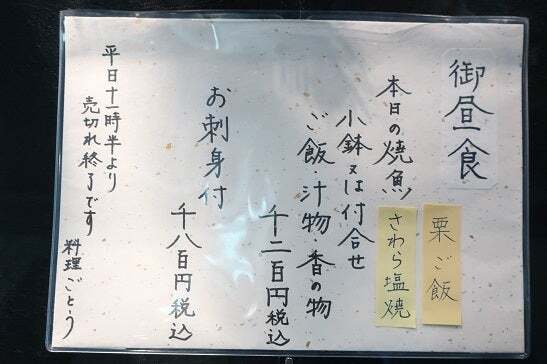 御昼食
栗ご飯
本日の焼魚
さわら塩焼
小鉢又は付合せ
ご飯・汁物・香の物
千二百円税込
お刺身付
千八百円税込
平日十一時半より
売切れ終了です
料理ごとう